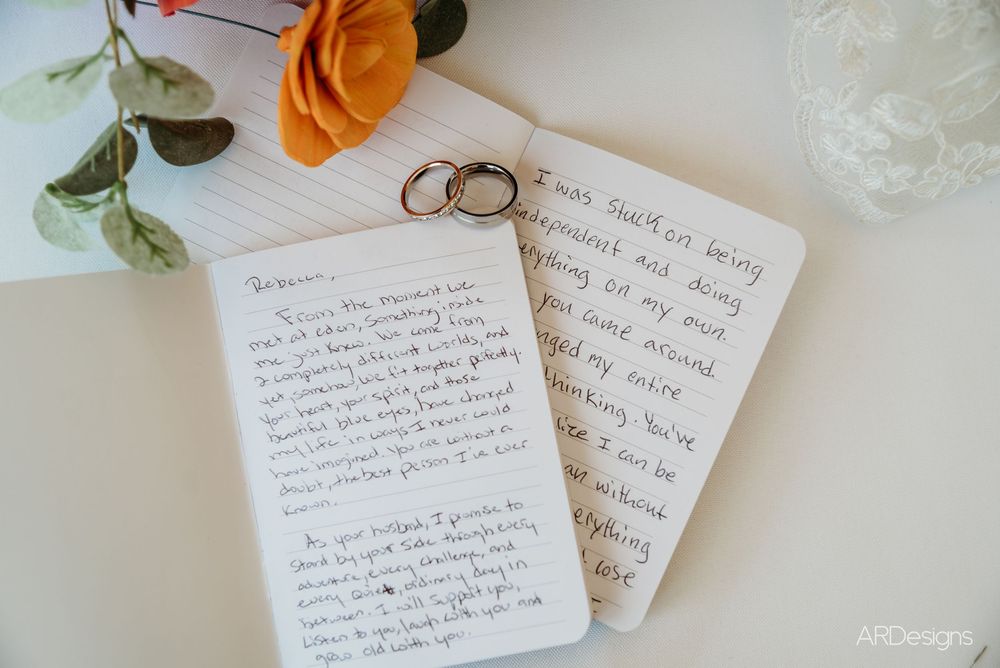 Rebecca,
From the moment we
met at eden, something inside
me just knew. We come from
2 completely different worlds, and
yet, somehow, we fit together perfectly.
Your heart, your spirit, and those
beautiful blue eyes, have changed
my life in ways I never could
have imagined. You are without a
doubt, the best person I've ever
known.
As your husband, I promise to
stand by your side through every
adventure, every challenge, and
every quiet, ordinary day in
between. I will support you,
Listen to you, laugh with you and
grow old with you.
I was stuck on being
independent and doing
erything on my own.
you came around
nged my entire
thinking. You've
lize I can be
an without
erything
lose
I
ARDesigns